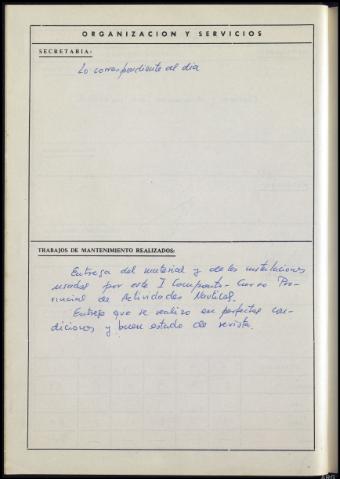 ORGANIZACION Y SERVICIOS
SECRETARIA:
Lo correspondiente al dia
TRABAJOS DE MANTENIMIENTO REALIZADOS:
Entrega del material y de las instalaciones
usadas por este I Campamento-Curso Pro-
vincial de Actividades Nauticas.
Entrega que se realizo en perfectas con-
diciones y buen estado de revista.